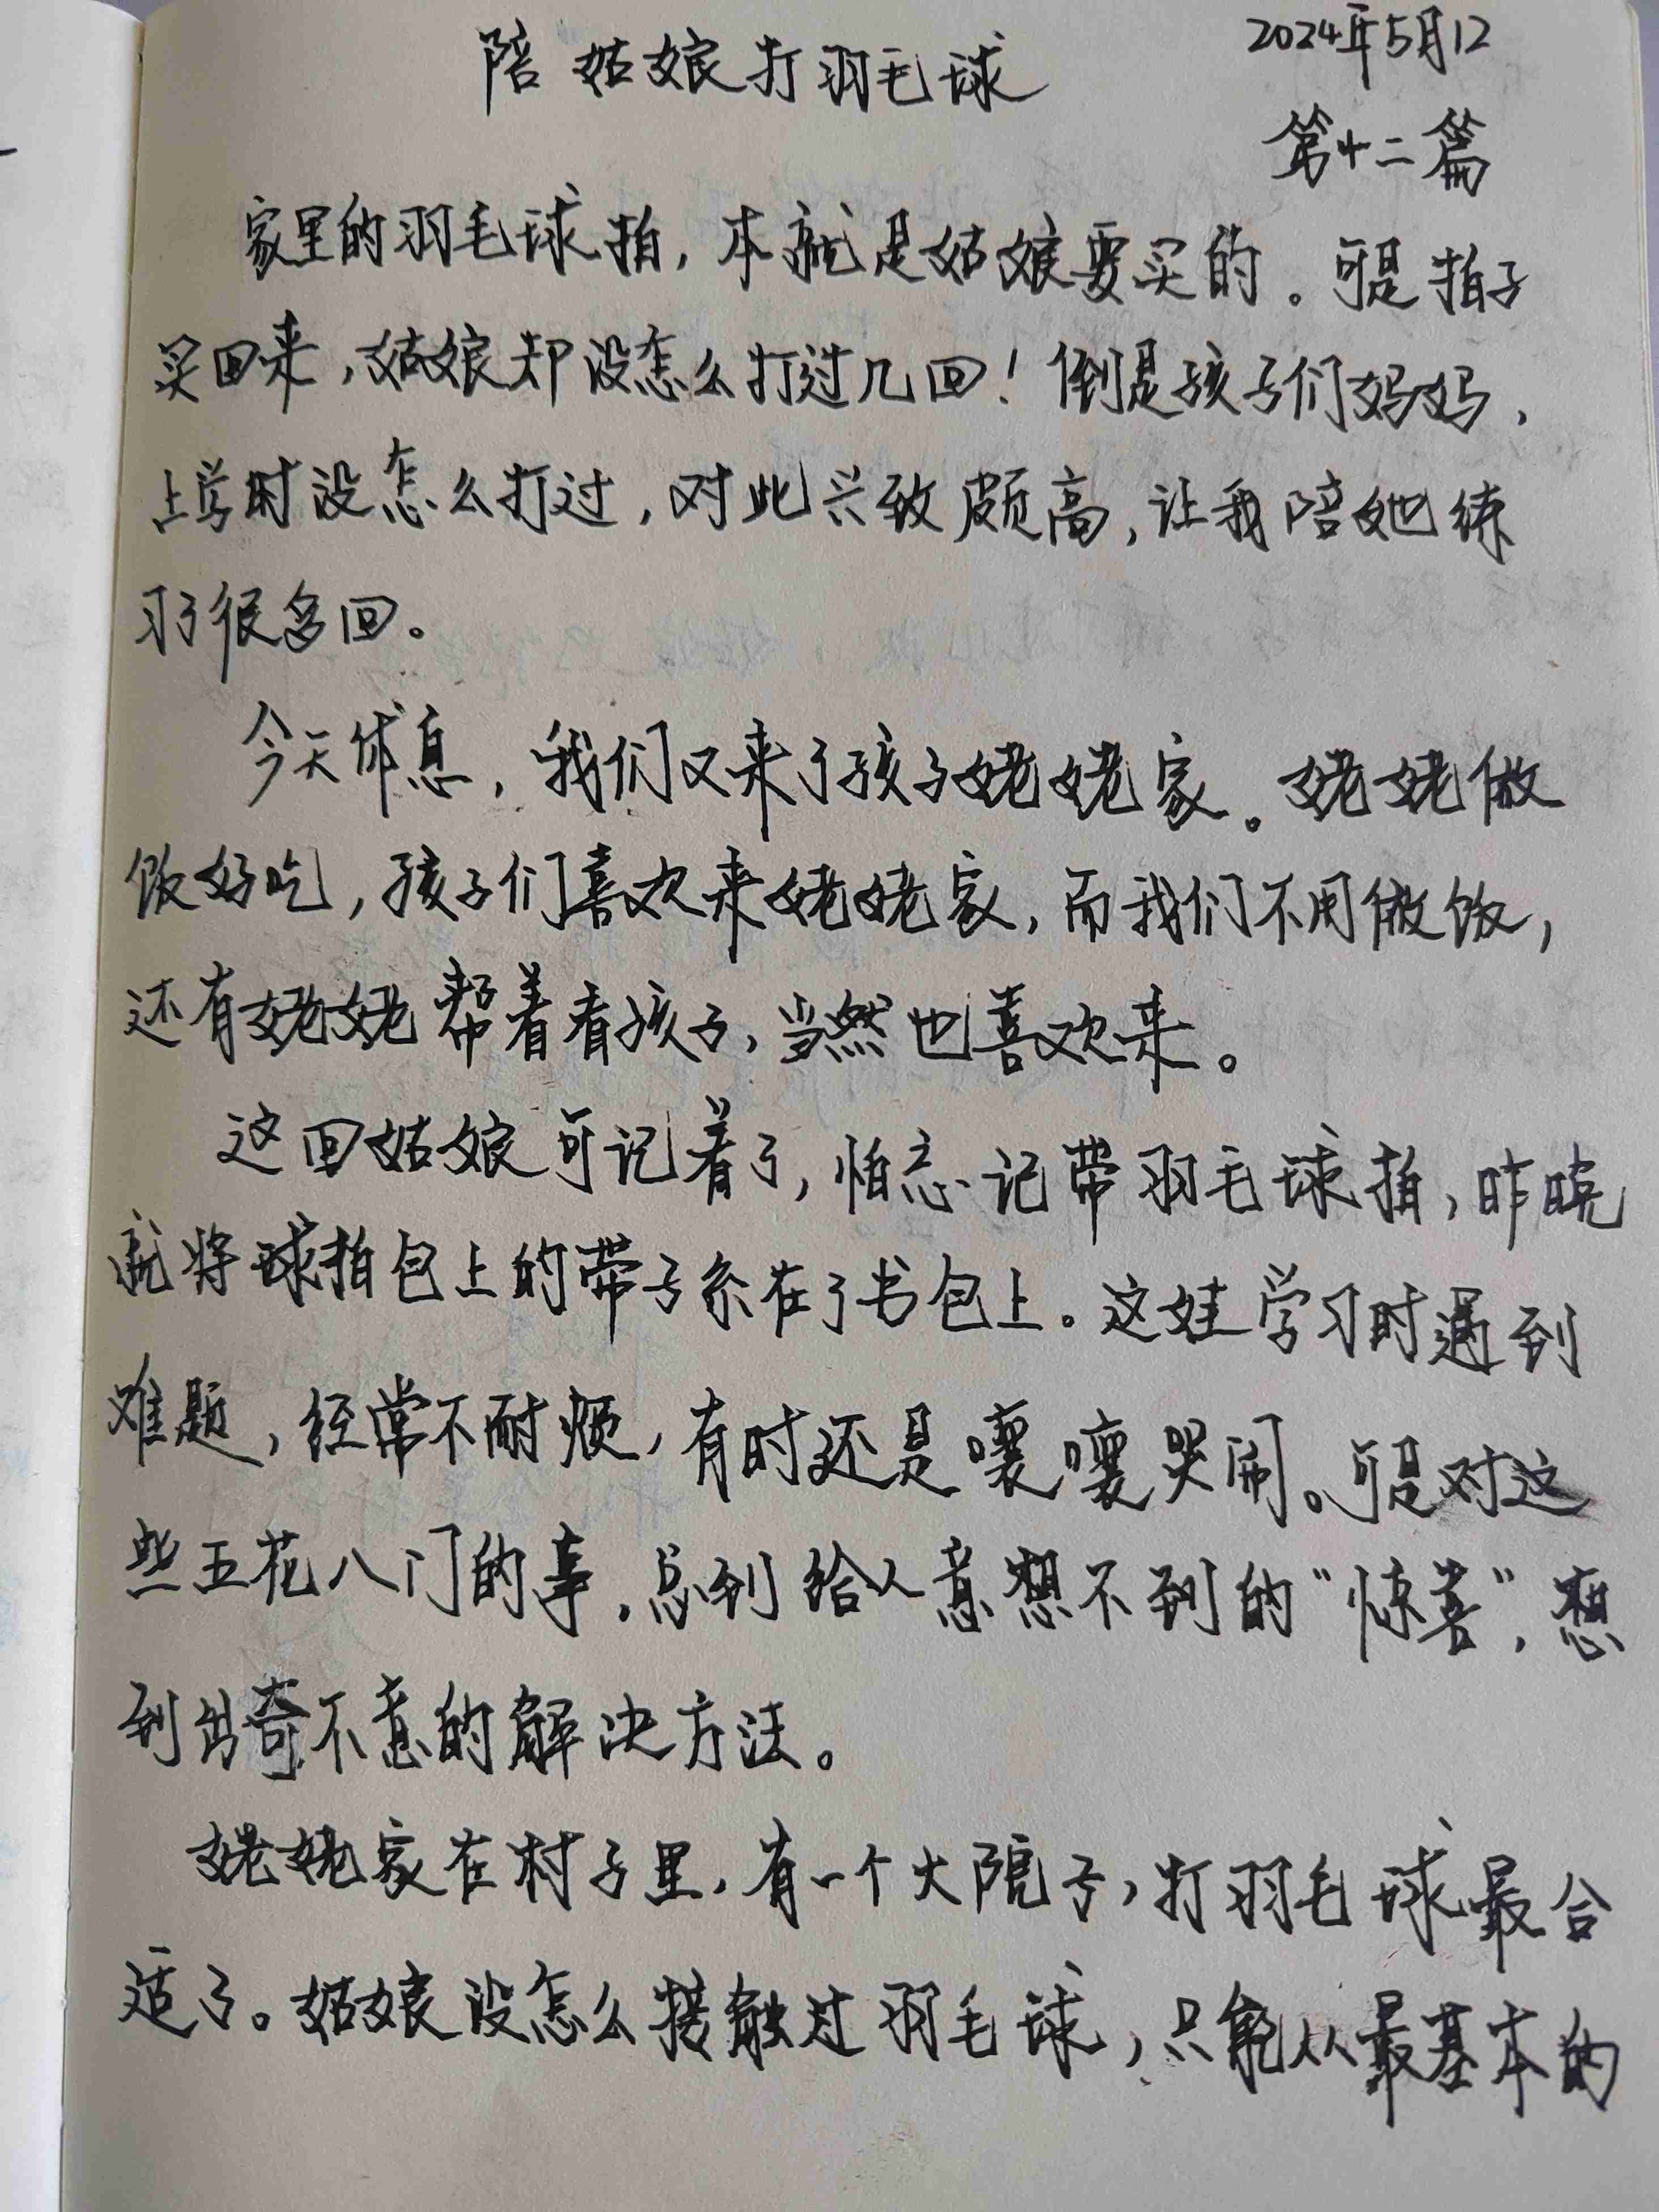 陪姑娘打羽毛球
2024年5月12
第十二篇
家里的羽毛球拍，本就是姑娘要买的。可是拍子
买回来，姑娘却没怎么打过几回！倒是孩子们妈妈，
上学时没怎么打过，对此兴致颇高，让我陪她练
习了很多回。
今天休息，我们又来了孩子姥姥家。姥姥做
饭好吃，孩子们喜欢来姥姥家，而我们不用做饭，
还有姥姥帮着看孩子，当然也喜欢来。
这回姑娘可记着了，怕忘记带羽毛球拍，昨晚
就将球拍包上的带子系在了书包上。这娃学习时遇到
难题，经常不耐烦，有时还是嚷嚷哭闹。可是对这
些五花八门的事，总到给人意想不到的“惊喜”，想
到出奇不意的解决方法。
姥姥家在村子里，有一个大院子，打羽毛球最合
适了。姑娘没怎么接触过羽毛球，只能从最基本的